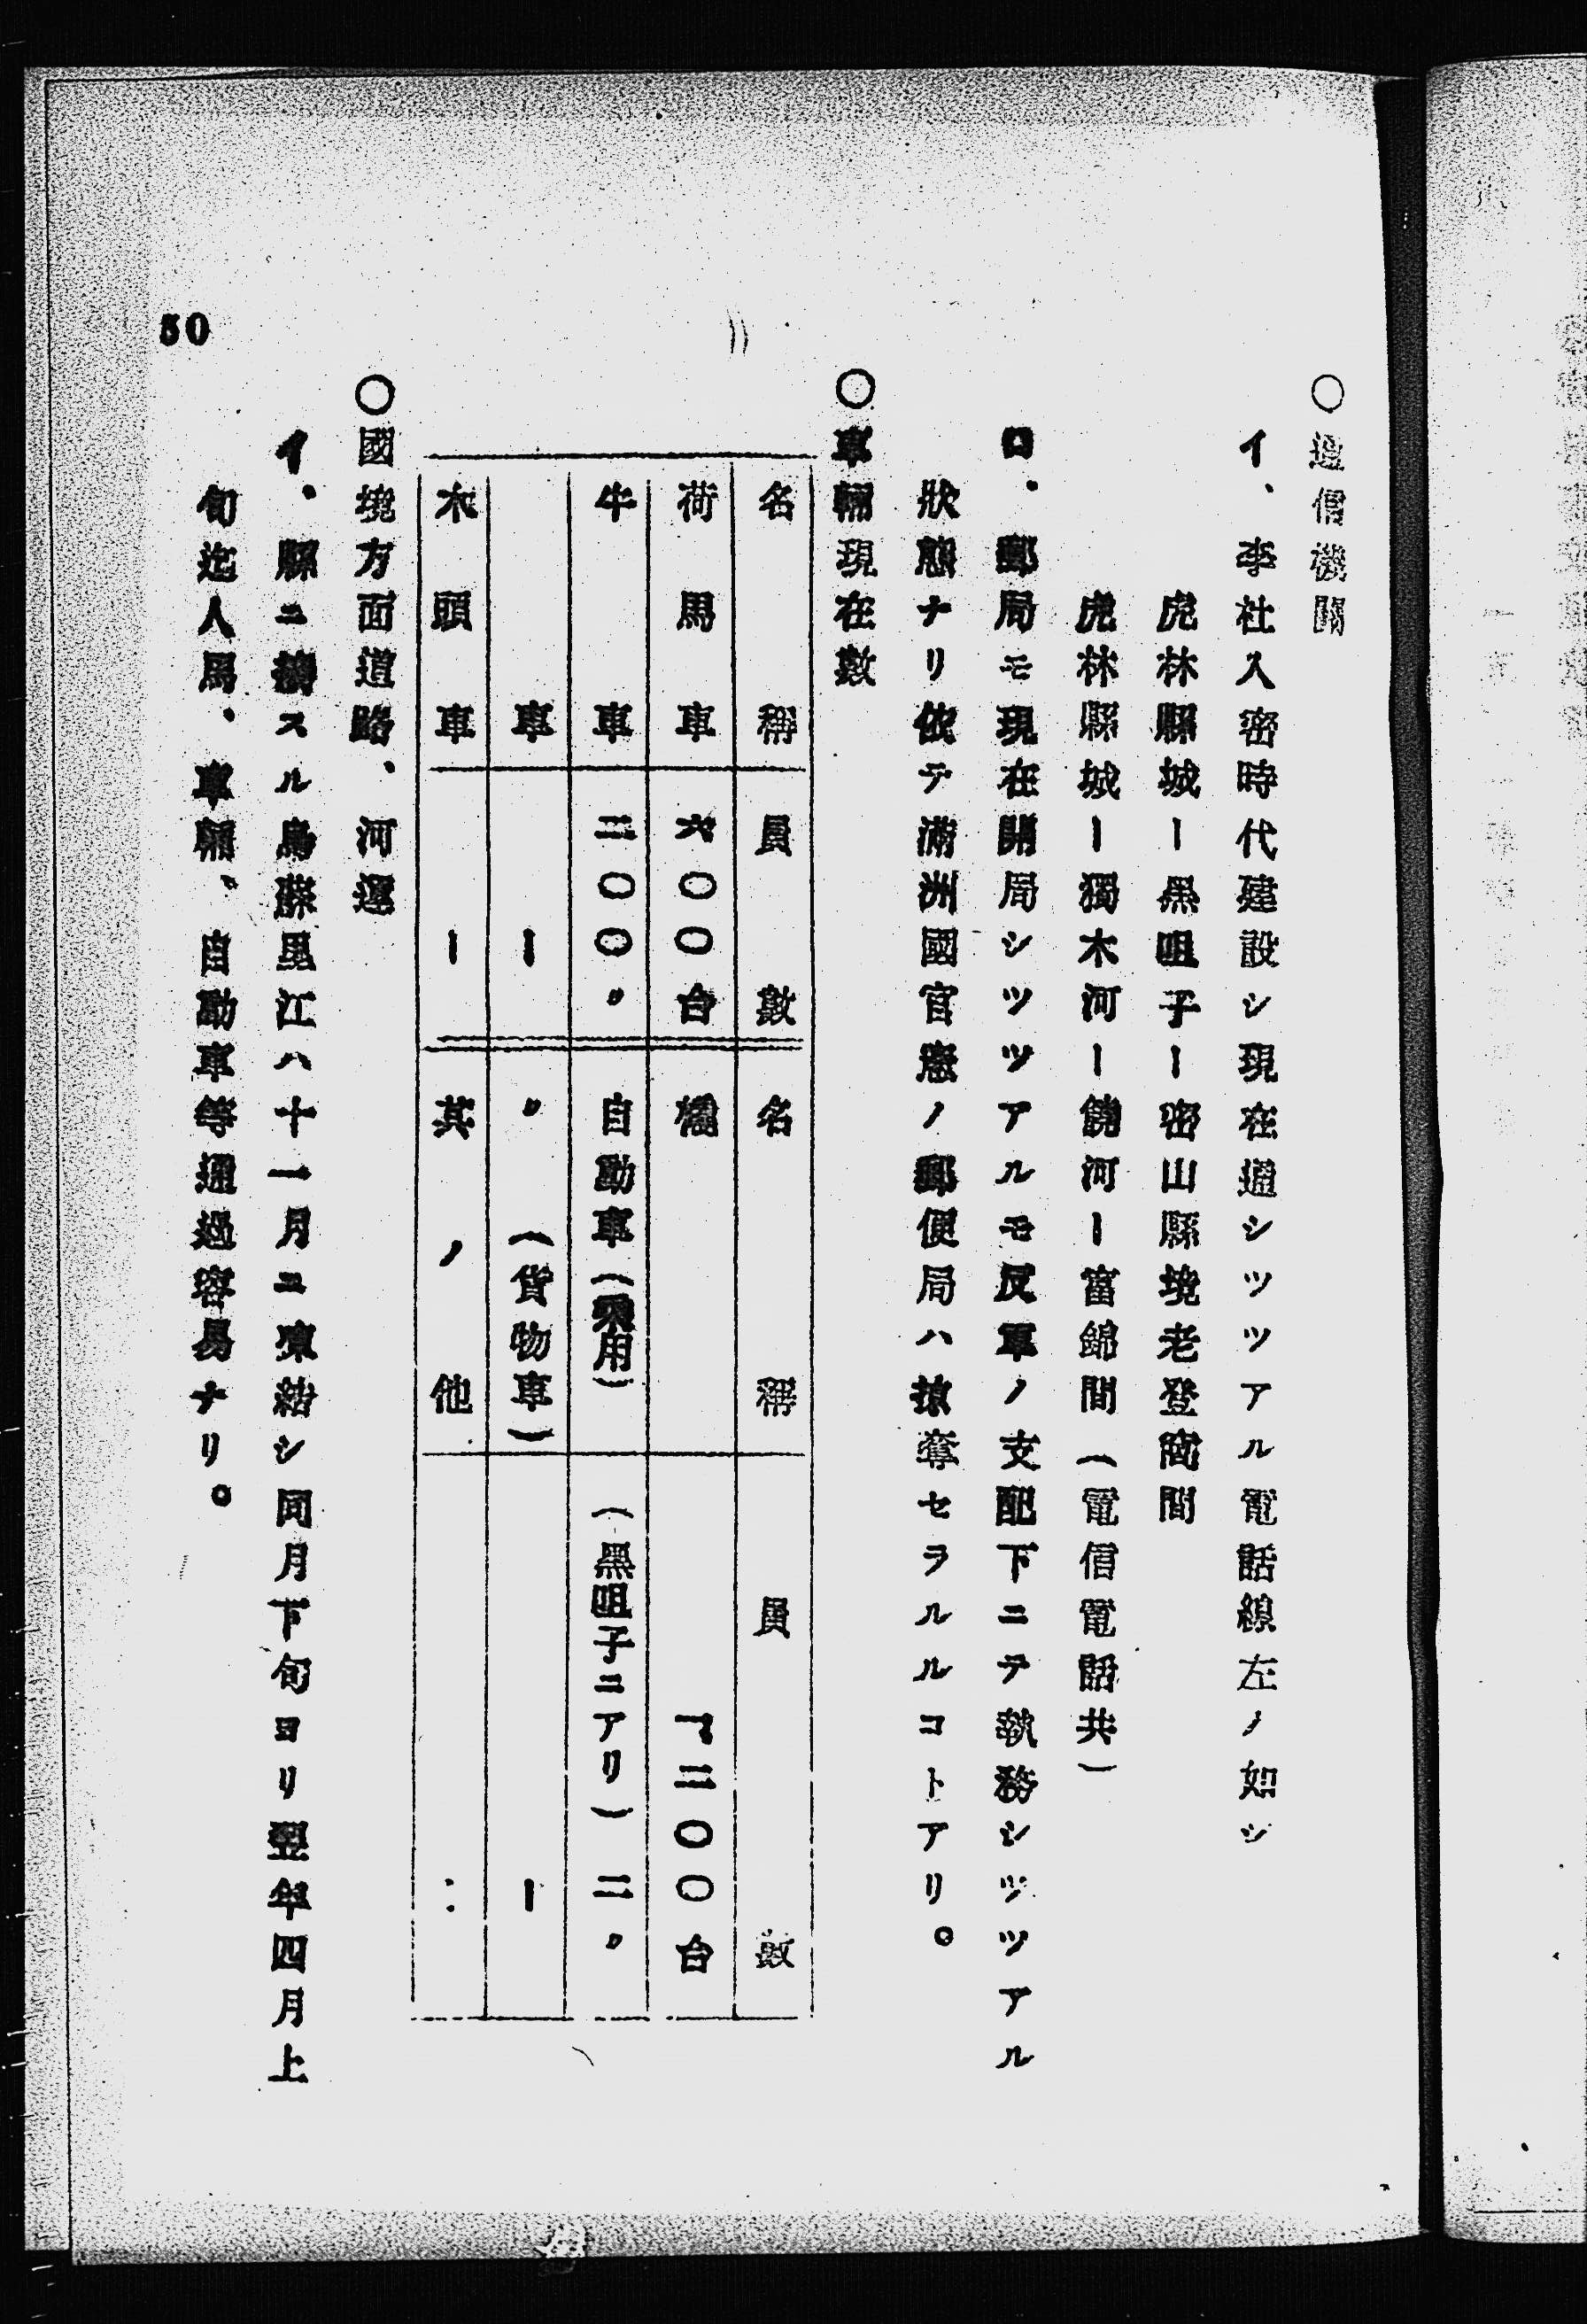 ○通信機關
イ、李社入密時代建設シ現在通シツツアル電話線左ノ如シ
虎林縣城ー黑咀子ー密山縣境老登崗間
虎林縣城ー獨木河ー饒河ー富錦間(電信電話共)
ロ、郵局モ現在開局シツツアルモ反軍ノ支配下ニテ執務シツツアル
狀態ナリ依テ滿洲國官憲ノ郵便局ハ掠奪セラルルコトアリ。
○車輛現在數
名稱 員數 名稱 員數
荷馬車 六〇〇台 橇 一二〇〇台
牛車 二〇〇〃 自動車(乘用) (黑咀子ニアリ)二〃
車 ー 〃(貨物車) ー
木頭車 ー 其ノ他 :
○國境方面道路、河運
イ、縣ニ接スル烏蘇里江ハ十一月ニ凍結シ同月下旬ヨリ翌年四月上
旬迄人馬、車輛、自動車等通過容易ナリ。
50